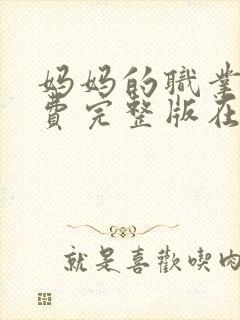 妈妈的職業
費完整版在
就是喜歡喫肉